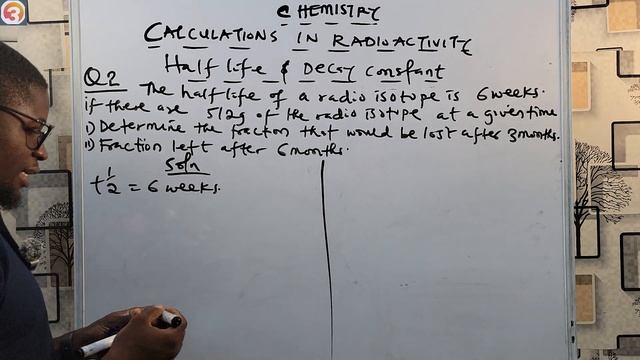 3
CHEMISTRY
CALCULATIONS IN RADIOACTIVITY
Half life & Decay constant
Q2 The half life of a radio isotope is 6 weeks.
if there are 512g of the radio isotope at a given time
i) Determine the fraction that would be lost after 3 months.
ii) Fraction left after 6 months.
Soln
t½ = 6 weeks.